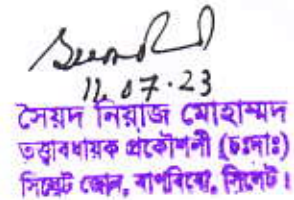 11.07.23
সৈয়দ নিয়াজ মোহাম্মদ
তত্ত্বাবধায়ক প্রকৌশলী (চঃদাঃ)
সিলেট জোন, বাপবিবো, সিলেট।